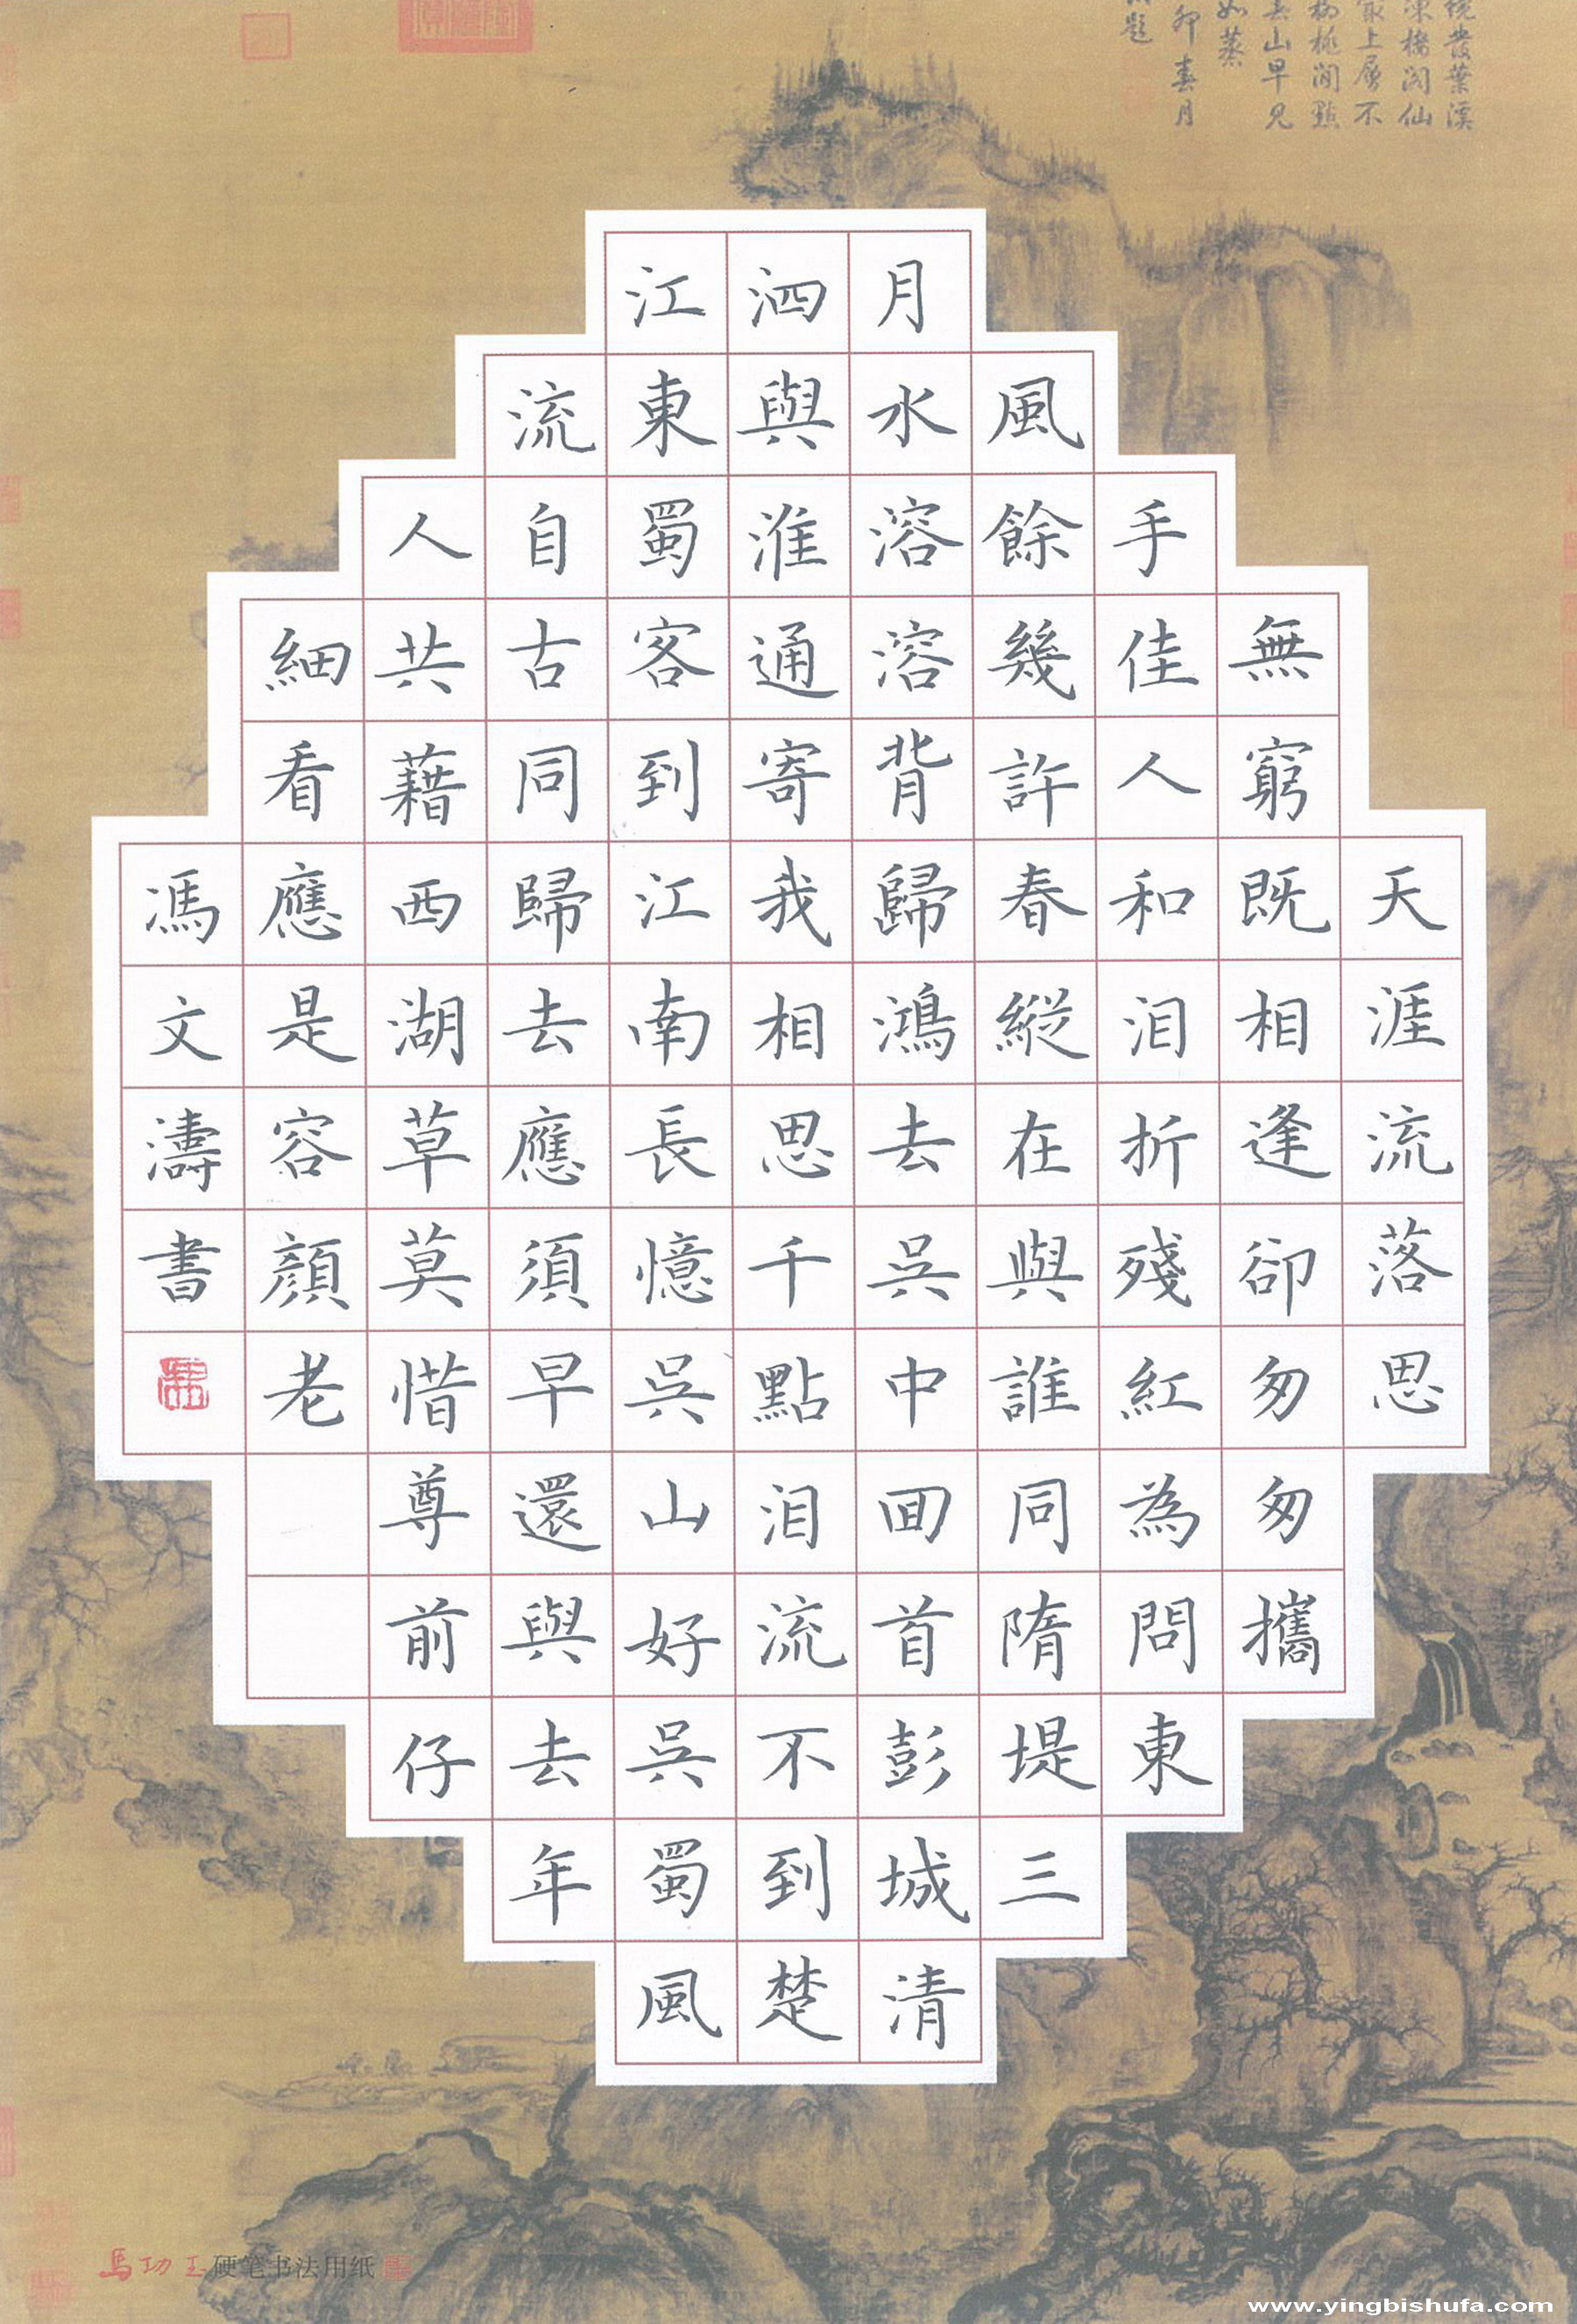 發葉溪
凍樓閣仙
最上層不
柳桃閒點
春山早見
如蒸
卯春月
題
天涯流落思
無窮既相逢卻匆匆攜
手佳人和泪折殘紅為問東
風餘幾許春縱在與誰同隋堤三
月水溶溶背歸鴻去吳中囬首彭城清
泗與淮通寄我相思千點泪流不到楚
江東蜀客到江南長憶吳山好吳蜀風
流自古同歸去應須早還與去年
人共藉西湖草莫惜尊前仔
細看應是容顏老
馮文濤書
馬功王硬笔书法用纸
www.yingbishufa.com